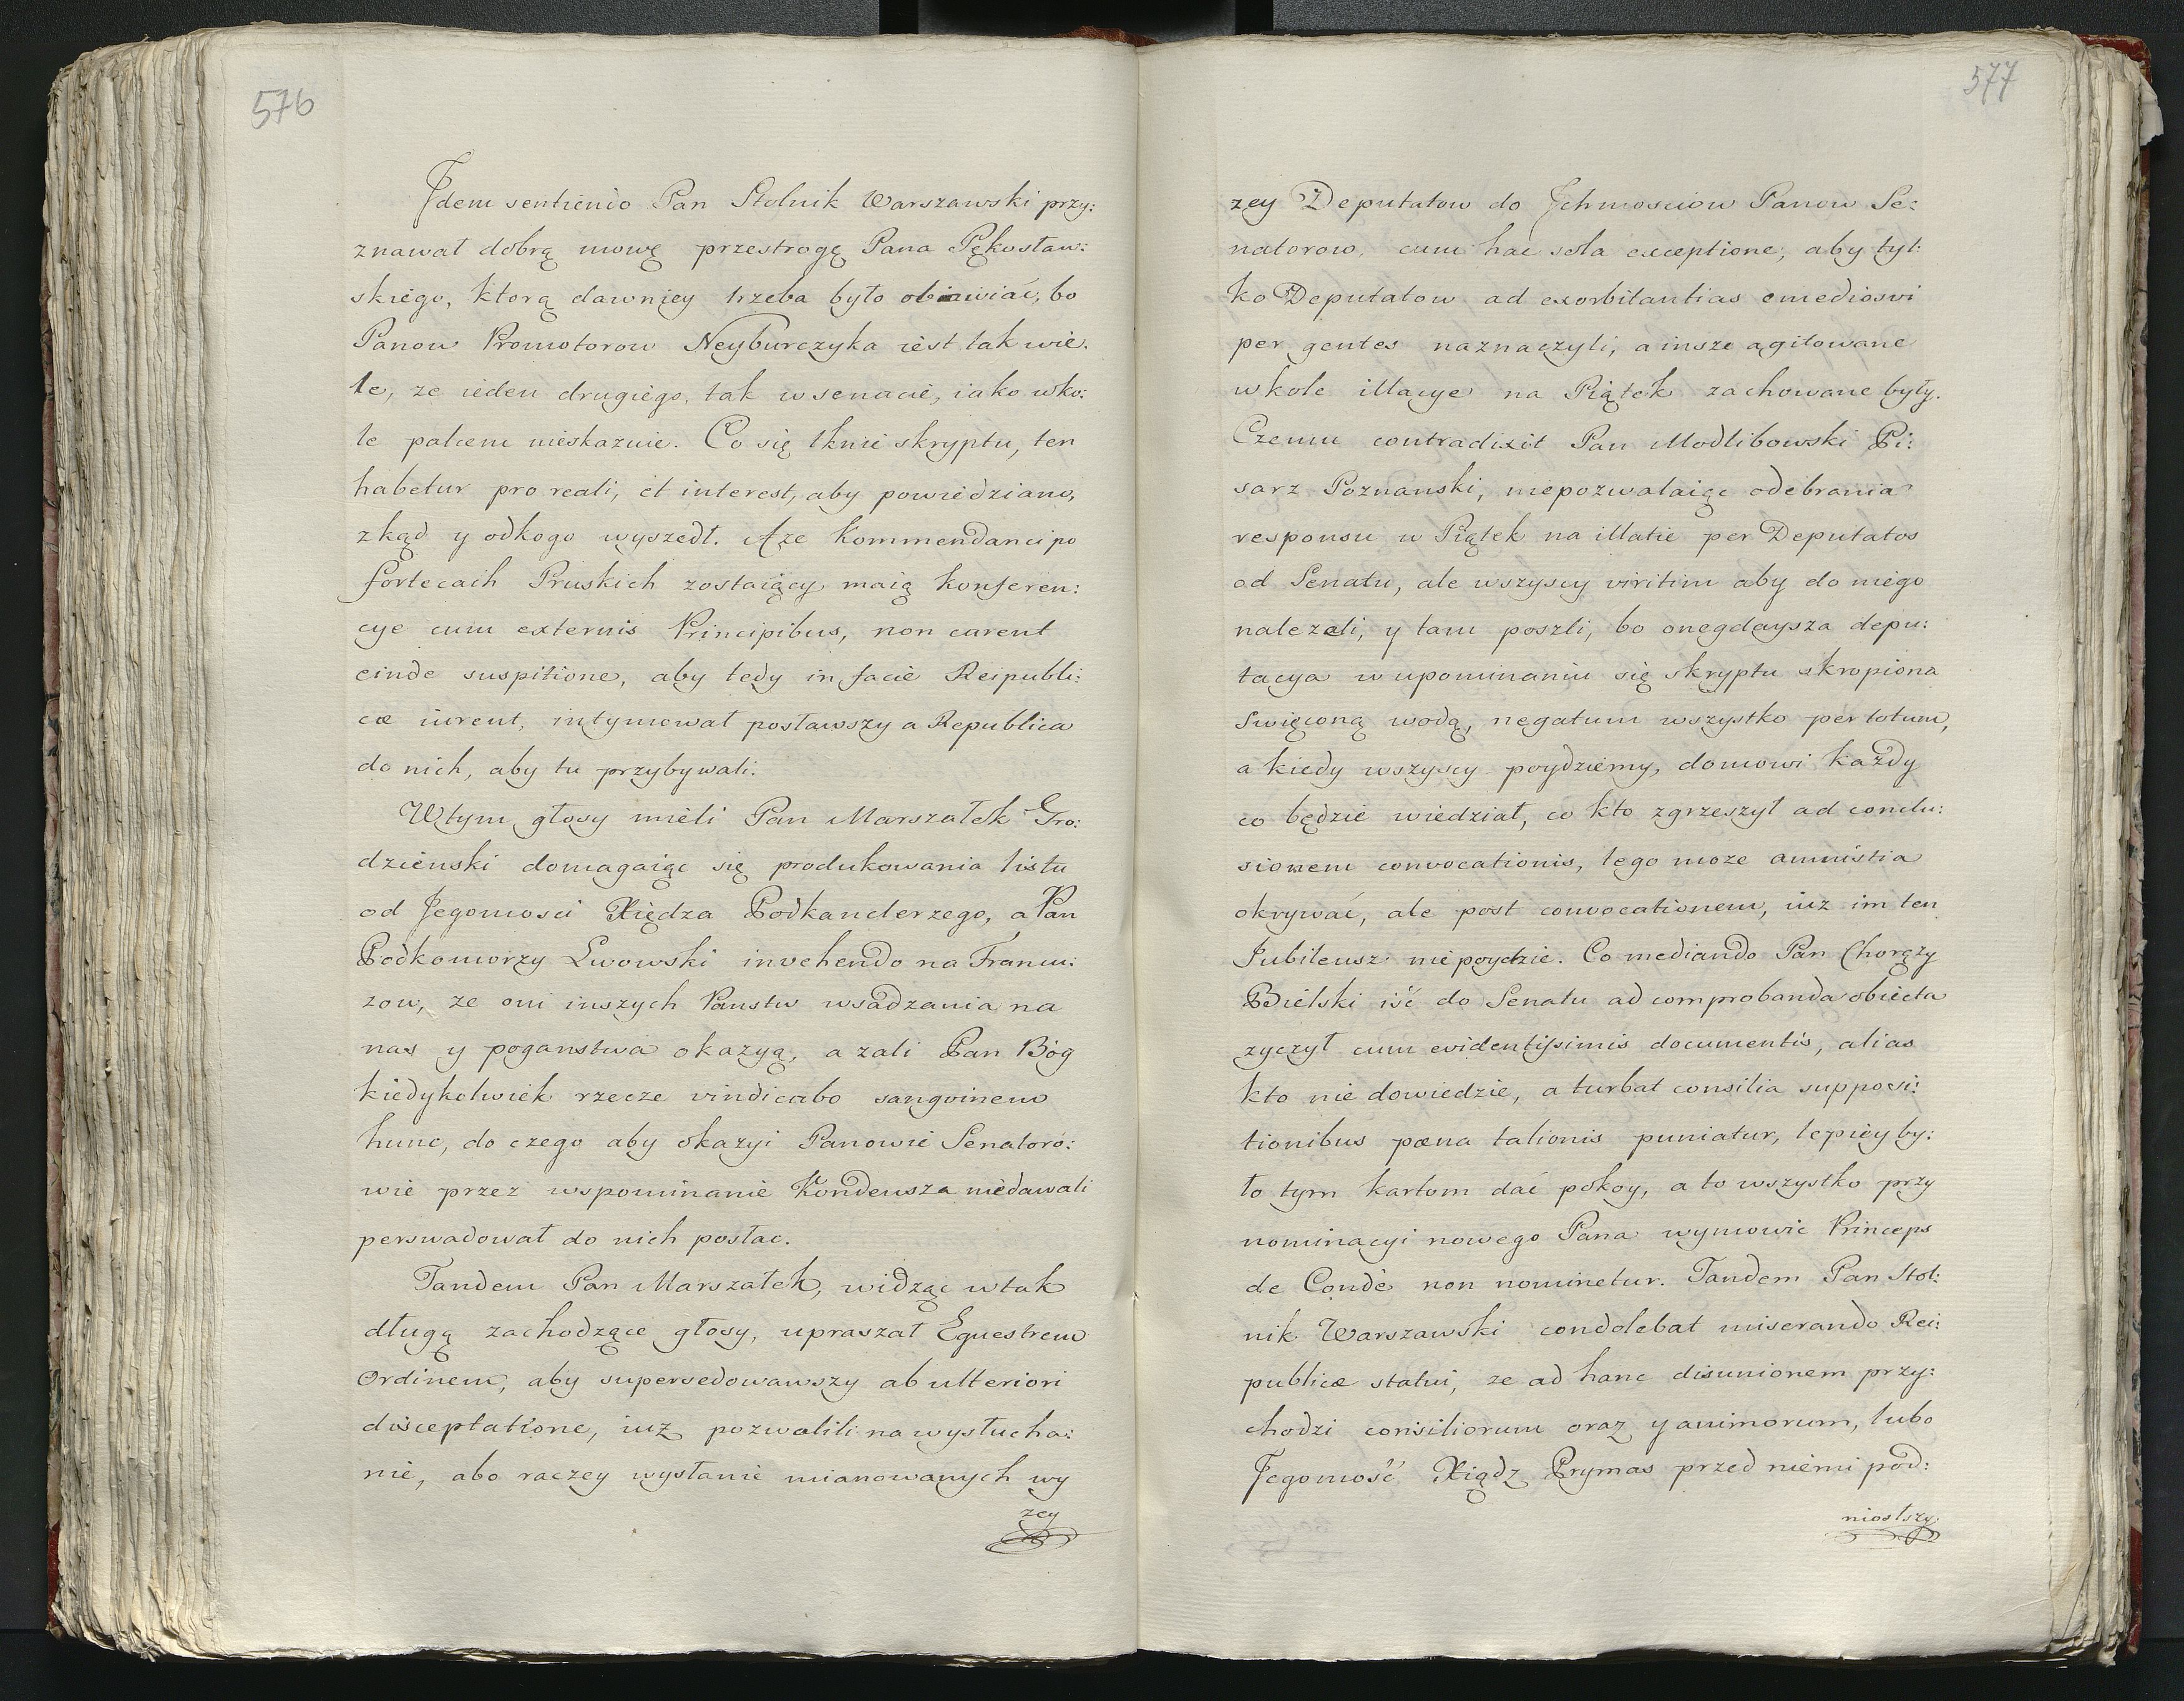 576
Idem sentiendo Pan Stolnik Warszawski przy:
znawał dobrą mowę przestrogę Pana Pękosław:
skiego, ktorą dawniey trzeba było obiawiać, bo
Panow Promotorow Neyburczyka iest tak wie.
le, ze ieden drugiego, tak w senacie, iako wko:
le palcem nieskazuie. Co się tknie skryptu, ten
habetur pro reali, et interest, aby powiedziano,
zkąd y odkogo wyszedł. Aze Kommendanci po
fortecach Pruskich zostaiący maią konferen:
cye cum externis Principibus, non carent
einde suspitione, aby tedy in facie Reipubli:
cæ iurent, intymował posławszy a Republica
do nich, aby tu przybywali.
Wtym głosy mieli Pan Marszałek Gro:
dzienski domagaiąc się produkowania listu
od Jegomosci Xiędza Podkanclerzego, a Pan
Podkomorzy Lwowski invehendo na Francu:
zow, ze oni inszych Panstw wsadzania na
nas y poganstwa okazyą, a zali Pan Bóg
kiedykolwiek rzecze vindicabo sangvinem
hunc, do czego aby okazyi Panowie Senatoro:
wie przez wspominanie Kondeusza niedawali
perswadował do nich posłac.
Tandem Pan Marszałek, widząc w tak
długą zachodzące głosy, upraszał Equestrem
Ordinem, aby supersedowawszy ab ulteriori
disceptatione, iuz pozwolili na wysłucha:
nie, abo raczey wysłanie mianowanych wy
zey
577
zey Deputatow do Jchmosciow Panow Se:
natorow, cum hac sola exceptione, aby tyl:
ko Deputatow ad exorbitantias e mediosvi
per gentes naznaczyli, a insze agitowane
w kole illacye na Piątek zachowane były.
Czemu contradixit Pan Modlibowski Pi:
sarz Poznanski, niepozwalaiąc odebrania
responsu w Piątek na illatie per Deputatos
od Senatu, ale wszyscy viritim aby do niego
nalezeli, y tam poszli, bo onegdaysza depu:
tacya w upominaniu się skryptu skropiona
Swięconą wodą, negatum wszystko per totum,
a kiedy wszyscy poydziemy, domowi kazdy
co będzie wiedział, co kto zgrzeszył ad conclu:
sionem convocationis, tego moze amnistia
okrywać, ale post convocationem, iuz im ten
Jubileusz nie poydzie. Co mediando Pan Chorąży
Bielski iść do Senatu ad comprobanda obiecta
zyczył cum evidentissimis documentis, alias
kto nie dowiedzie, a turbat consilia supposi:
tionibus pœna talionis puniatur, lepiey by:
ło tym kartom dać pokoy, a to wszystko przy
nominacyi nowego Pana wymowic Princeps
de Condè non nominetur. Tandem Pan Stol:
nik Warszawski condolebat miserando Rei:
publicæ statui, ze ad hanc disunionem przy:
chodzi consiliorum oraz y animorum, lubo
Jegomość Xiądz Prymas przed niemi pod:
niosłszy